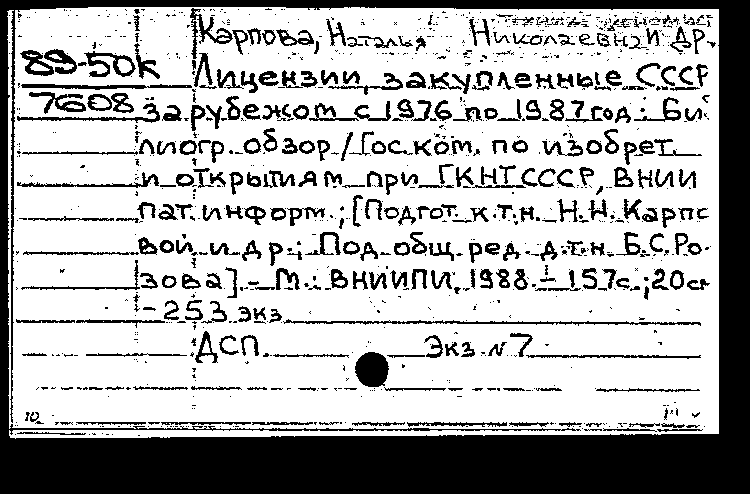 Карпова, Наталья Николаевна и др.
89-50к Лицензии, закупленные СССР
7608 за рубежом с 1976 по 1987 год: Биб
лиогр. обзор / Гос. ком. по изобрет.
и открытиям при ГКНТ СССР, ВНИИ
пат. информ.; [Подгот. к.т.н. Н.Н. Карпо
вой и др.; Под общ. ред. д.т.н. Б.С. Ро-
зова]. – М.: ВНИИПИ, 1988. – 157с.; 20см
– 253 экз.
ДСП. Экз. N 7
10